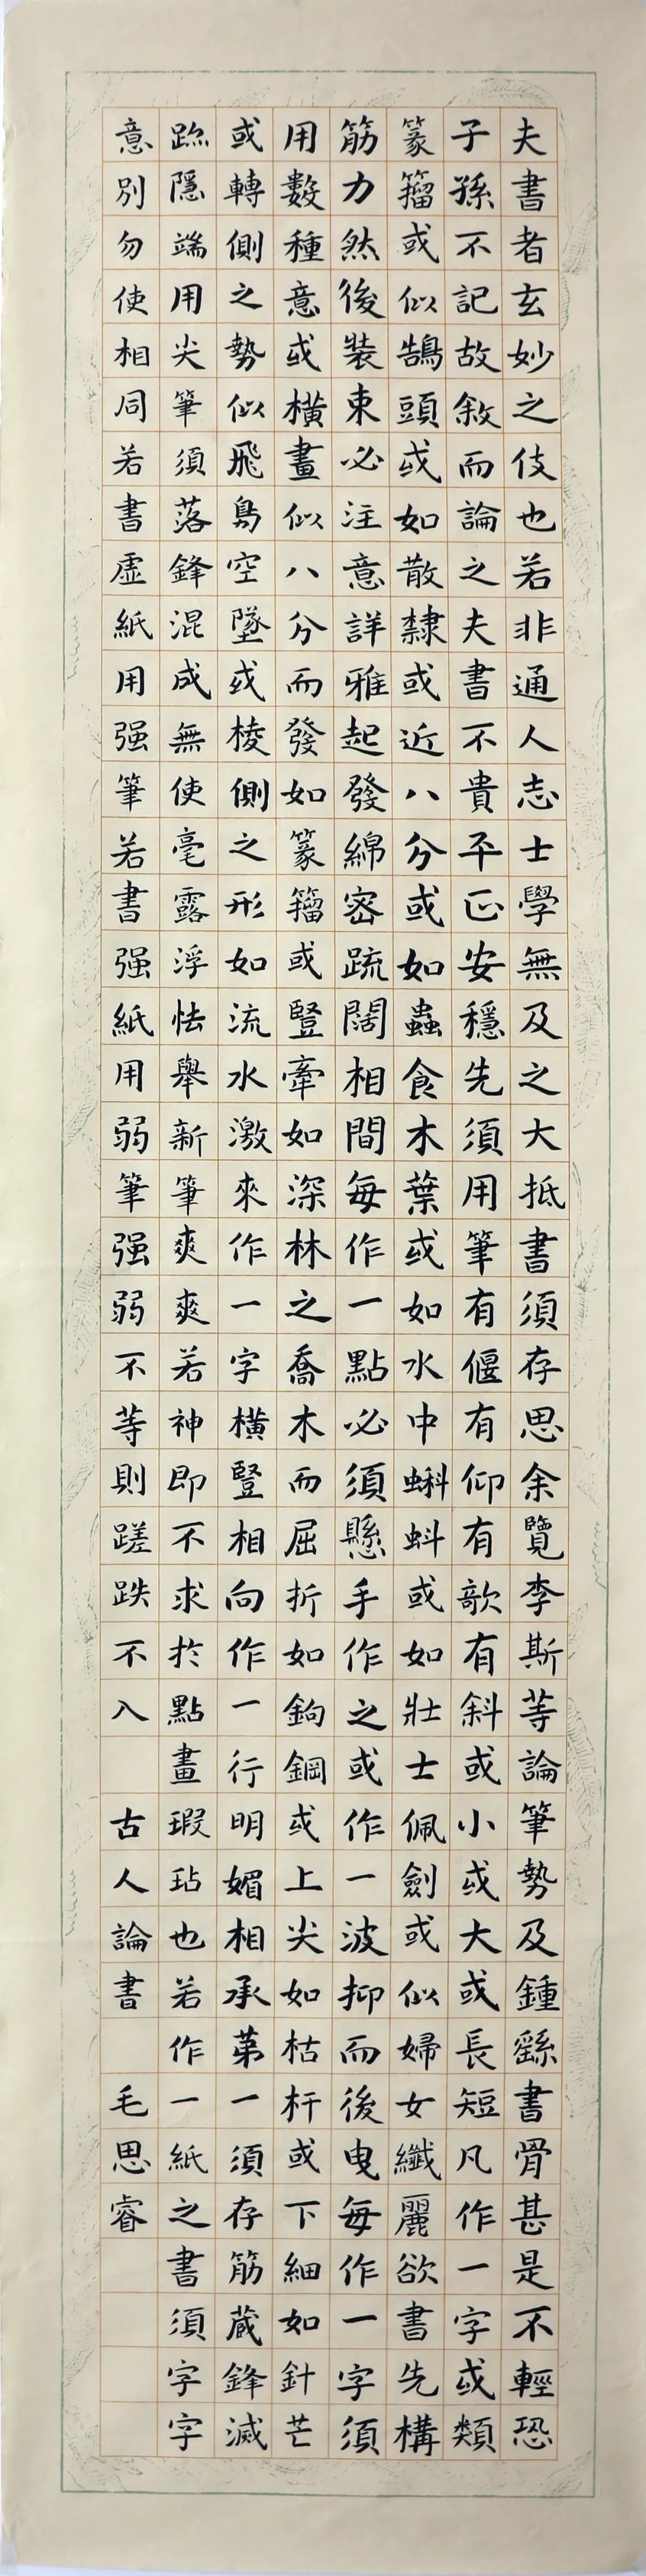 夫書者玄妙之伎也若非通人志士學無及之大抵書須存思余覽李斯等論筆勢及鍾繇書骨甚是不輕恐
子孫不記故敘而論之夫書不貴平正安穩先須用筆有偃有仰有欹有斜或小或大或長短凡作一字或類
篆籀或似鵠頭或如散隸或近八分或如蟲食木葉或如水中蝌蚪或如壯士佩劍或似婦女纖麗欲書先構
筋力然後裝束必注意詳雅起發綿密疏闊相間每作一點必須懸手作之或作一波抑而後曳每作一字須
用數種意或橫畫似八分而發如篆籀或豎牽如深林之喬木而屈折如鉤鋼或上尖如枯杆或下細如針芒
或轉側之勢似飛鳥空墜或棱側之形如流水激來作一字橫豎相向作一行明媚相承第一須存筋藏鋒滅
跡隱端用尖筆須落鋒混成無使毫露浮怯舉新筆爽爽若神即不求於點畫瑕玷也若作一紙之書須字字
意別勿使相同若書虛紙用强筆若書强紙用弱筆强弱不等則蹉跌不入 古人論書 毛思睿